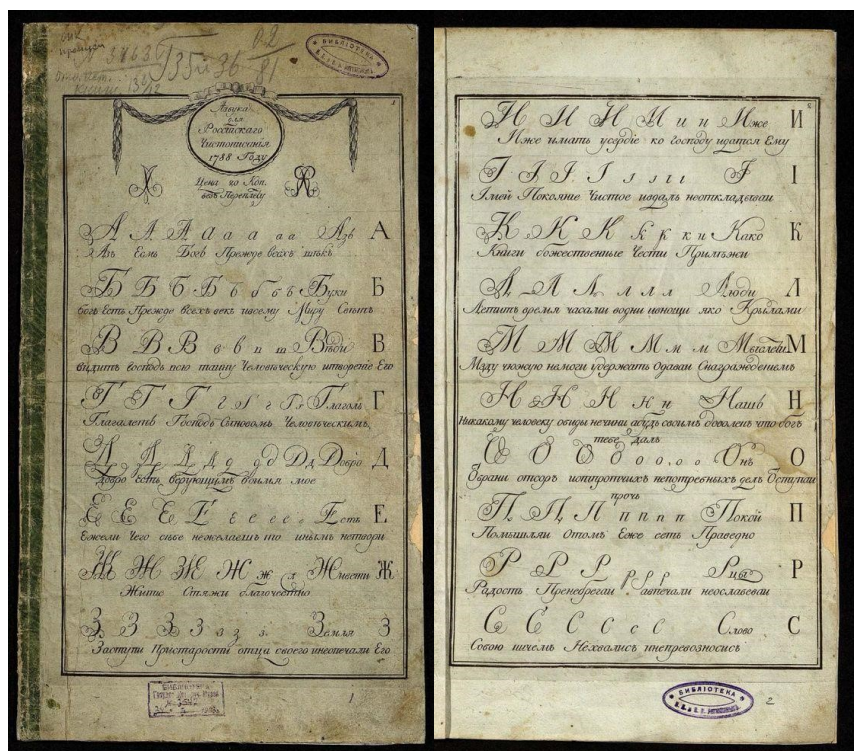 Азбука
для
Россiйскаго
Чистописанiя
1788 Году
Цена 20 Коп.
безъ Переплету
А А А а а а а Азъ А
Азъ Есмь Богъ Прежде всехъ
Б Б Б Б Б б б ъ Буки Б
богъ Есть Прежде всехъ векъ
В В В в в Вѣди В
видитъ господь всю тайну Человѣческую итворенiе Его
Г Г Г г г г Глаголь Г
Глаголетъ Господь Сыновомъ Человѣческимъ,
Д Д Д Д д д д Д д Добро Д
добро Есть верующимъ воимя мое
Е Е Е Е е е е е Есть Е
Ежели Чего себе нежелаешъ то инымъ нетвори
Ж Ж Ж Ж ж Живети Ж
Житiе Стяжи благочестно
З З З З з з з Земля З
Заступи Пристарости отца своего инеопечали Его
БИБЛIОТЕКА
И И И И и и Иже И
Иже имать усердiе ко господу
I I I I i i I I
Iмей Покоянiе Чистое
К К К К к к Како К
Книги божественные Чести Прилѣжи
Л Л Л л л л Люди Л
Летитъ время часами водни ивнощи яко Крылами
М М М М м м Мыслети М
Мзду чюжую немоги удержать Отдаваи Снаграждениемъ
Н Н Н Н н н Нашъ Н
Никакому человеку обиды нечини абудь своимъ доволенъ что богъ
тебе далъ
О О О О о о о о Онъ О
непотребныхъ делъ Отступаи
прочь
П П П п п п п Покой П
Помышляи Отомъ Еже есть Праведно
Р Р Р р р р Рцы Р
Радость Пренебрегаи авпечали неослабеваи
С С С С с С Слово С
Собою ничемъ Нехвались инепревозносись
БИБЛIОТЕКА
2